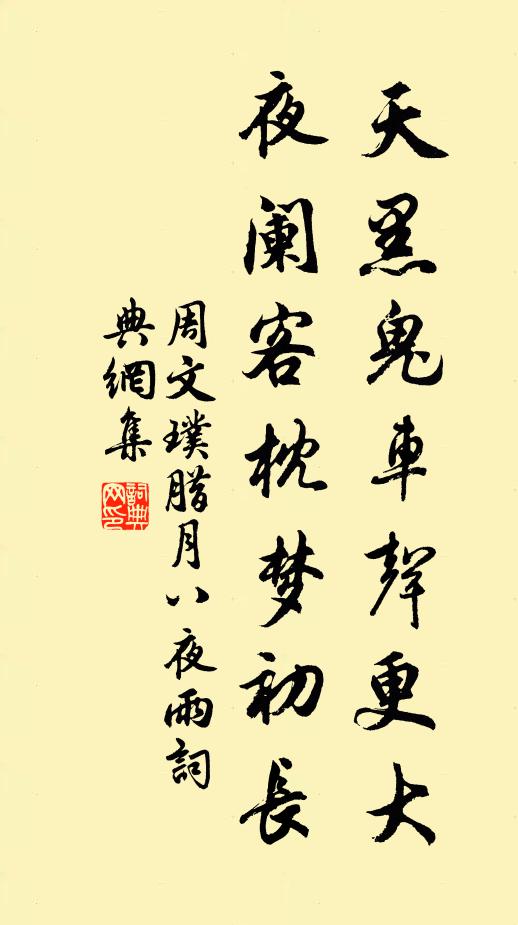 天黑鬼車聲更大
夜阑客枕梦初長
周文璞腊月八夜雨詞
典網集
詞典
网印